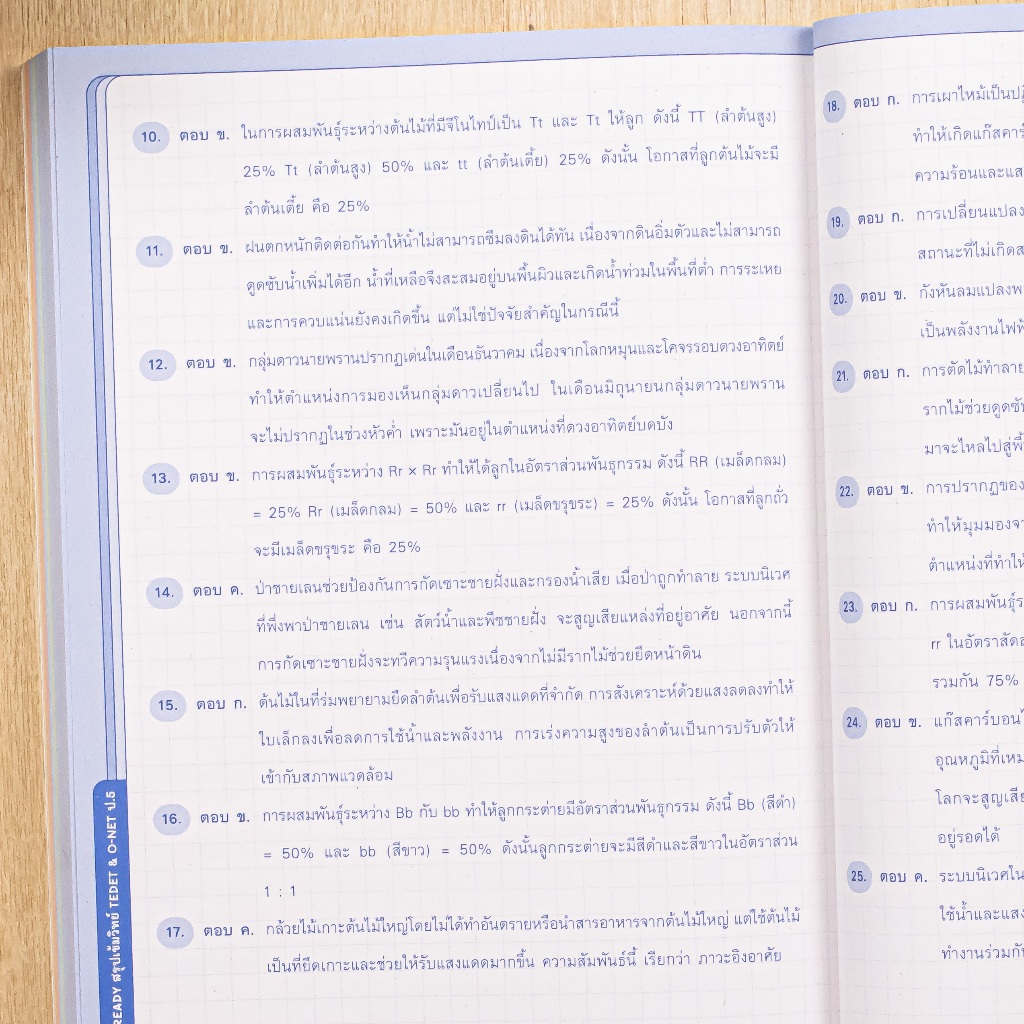 10. ตอบ ข. ในการผสมพันธุ์ระหว่างต้นไม้ที่มีจีโนไทป์เป็น Tt และ Tt ให้ลูก ดังนี้ TT (ลำต้นสูง)
25% Tt (ลำต้นสูง) 50% และ tt (ลำต้นเตี้ย) 25% ดังนั้น โอกาสที่ลูกต้นไม้จะมี
ลำต้นเตี้ย คือ 25%
11. ตอบ ข. ฝนตกหนักติดต่อกันทำให้น้ำไม่สามารถซึมลงดินได้ทัน เนื่องจากดินอิ่มตัวและไม่สามารถ
ดูดซับน้ำเพิ่มได้อีก น้ำที่เหลือจึงสะสมอยู่บนพื้นผิวและเกิดน้ำท่วมในพื้นที่ต่ำ การระเหย
และการควบแน่นยังคงเกิดขึ้น แต่ไม่ใช่ปัจจัยสำคัญในกรณีนี้
12. ตอบ ข. กลุ่มดาวนายพรานปรากฏเด่นในเดือนธันวาคม เนื่องจากโลกหมุนและโคจรรอบดวงอาทิตย์
ทำให้ตำแหน่งการมองเห็นกลุ่มดาวเปลี่ยนไป ในเดือนมิถุนายนกลุ่มดาวนายพราน
จะไม่ปรากฏในช่วงหัวค่ำ เพราะมันอยู่ในตำแหน่งที่ดวงอาทิตย์บดบัง
13. ตอบ ข. การผสมพันธุ์ระหว่าง Rr × Rr ทำให้ได้ลูกในอัตราส่วนพันธุกรรม ดังนี้ RR (เมล็ดกลม)
= 25% Rr (เมล็ดกลม) = 50% และ rr (เมล็ดขรุขระ) = 25% ดังนั้น โอกาสที่ลูกถั่ว
จะมีเมล็ดขรุขระ คือ 25%
14. ตอบ ค. ป่าชายเลนช่วยป้องกันการกัดเซาะชายฝั่งและกรองน้ำเสีย เมื่อป่าถูกทำลาย ระบบนิเวศ
ที่พึ่งพาป่าชายเลน เช่น สัตว์น้ำและพืชชายฝั่ง จะสูญเสียแหล่งที่อยู่อาศัย นอกจากนี้
การกัดเซาะชายฝั่งจะทวีความรุนแรงเนื่องจากไม่มีรากไม้ช่วยยึดหน้าดิน
15. ตอบ ก. ต้นไม้ในที่ร่มพยายามยืดลำต้นเพื่อรับแสงแดดที่จำกัด การสังเคราะห์ด้วยแสงลดลงทำให้
ใบเล็กลงเพื่อลดการใช้น้ำและพลังงาน การเร่งความสูงของลำต้นเป็นการปรับตัวให้
เข้ากับสภาพแวดล้อม
16. ตอบ ข. การผสมพันธุ์ระหว่าง Bb กับ bb ทำให้ลูกกระต่ายมีอัตราส่วนพันธุกรรม ดังนี้ Bb (สีดำ)
= 50% และ bb (สีขาว) = 50% ดังนั้นลูกกระต่ายจะมีสีดำและสีขาวในอัตราส่วน
1 : 1
17. ตอบ ค. กล้วยไม้เกาะต้นไม้ใหญ่โดยไม่ได้ทำอันตรายหรือนำสารอาหารจากต้นไม้ใหญ่ แต่ใช้ต้นไม้
เป็นที่ยึดเกาะและช่วยให้รับแสงแดดมากขึ้น ความสัมพันธ์นี้ เรียกว่า ภาวะอิงอาศัย
READY สรุปเข้มวิทย์ TEDET & O-NET ป.6
18. ตอบ ก. การเผาไหม้เป็น
ทำให้เกิดแก๊ส
ความร้อนและ
19. ตอบ ก. การเปลี่ยนแปลง
สถานะที่ไม่เกิด
20. ตอบ ข. กังหันลมแปลง
เป็นพลังงาน
21. ตอบ ก. การตัดไม้ทำลาย
รากไม้ช่วย
มาจะไหลไปสู่
22. ตอบ ข. การปรากฏของ
ทำให้มุมมอง
ตำแหน่งที่
23. ตอบ ก. การผสมพันธุ์
rr ในอัตรา
รวมกัน 75%
24. ตอบ ข. แก๊ส
อุณหภูมิที่
โลกจะสูญเสีย
อยู่รอดได้
25. ตอบ ค. ระบบนิเวศใน
ใช้น้ำและแสง
ทำงานร่วม